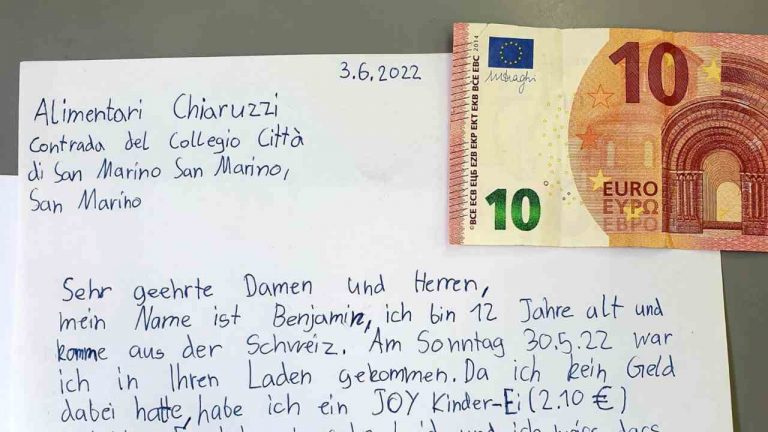 3.6.2022
Alimentari Chiaruzzi
Contrada del Collegio Città
di San Marino San Marino,
San Marino
Sehr geehrte Damen und Herren,
mein Name ist Benjamin, ich bin 12 Jahre alt und
komme aus der Schweiz. Am Sonntag 30.5.22 war
ich in Ihren Laden gekommen. Da ich kein Geld
dabei hatte, habe ich ein JOY Kinder-Ei (2.10 €)
©BCE ECB ЕЦБ EZB EKP EKT EKB BCE EBC 2014
10
10
EURO
ΕΥΡΩ
ЕВРО